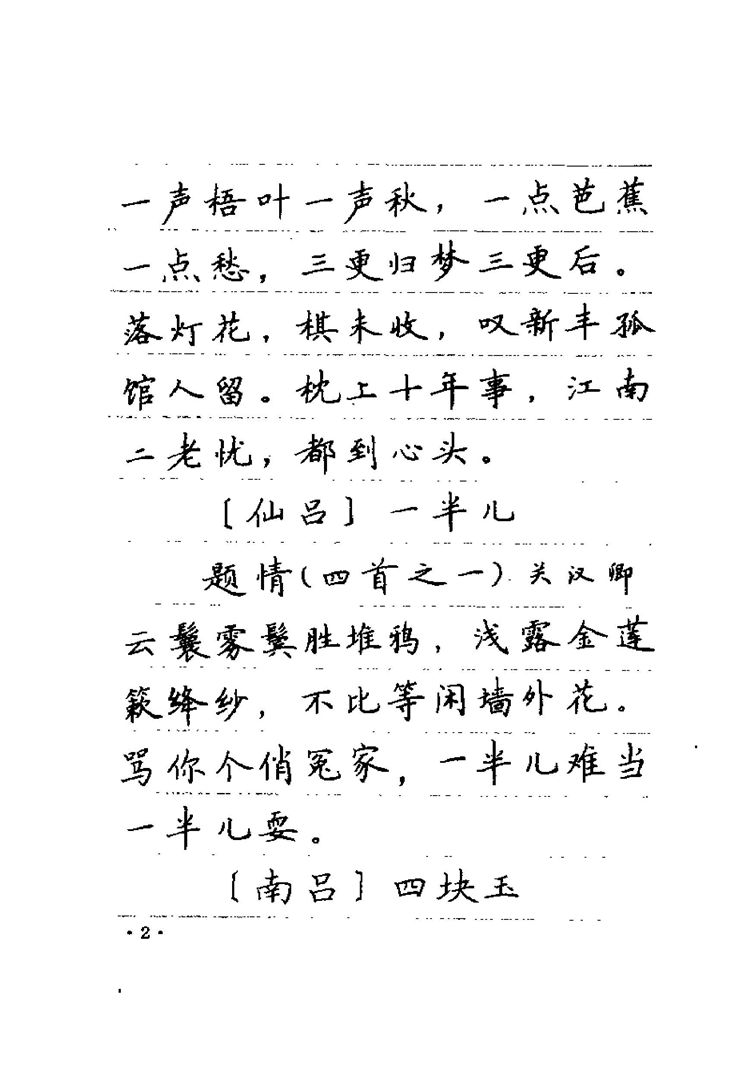 一声梧叶一声秋，一点芭蕉
一点愁，三更归梦三更后。
落灯花，棋未收，叹新丰孤
馆人留。枕上十年事，江南
二老忧，都到心头。
〔仙吕〕一半儿
题情(四首之一)关汉卿
云鬟雾鬓胜堆鸦，浅露金莲
簌绛纱，不比等闲墙外花。
骂你个俏冤家，一半儿难当
一半儿耍。
〔南吕〕四块玉
·2·